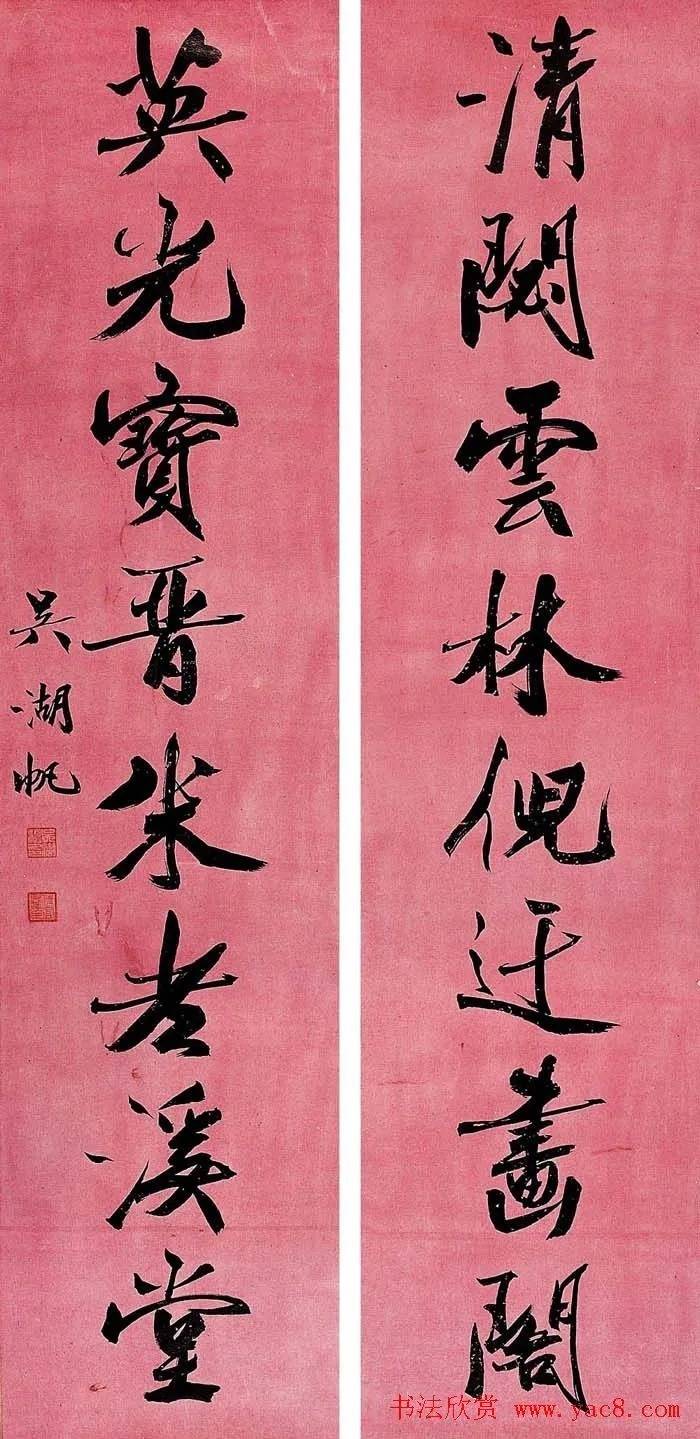 清閟雲林倪迂畫閣
英光寶晋米老溪堂
吴湖帆
书法欣赏 www.yac8.com